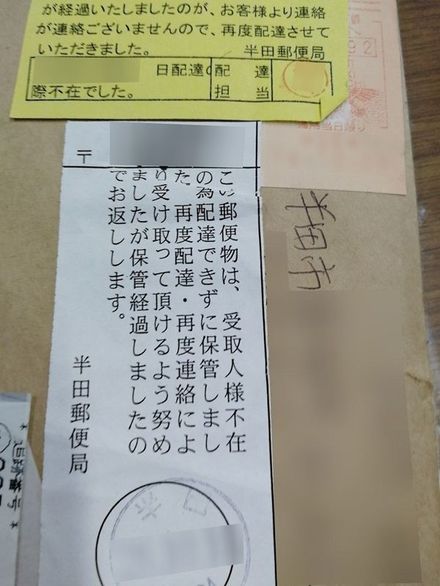 が経過いたしましたのが、お客様より連絡
が連絡ございませんので、再度配達させて
いただきました。 半田郵便局
日配達の 配達
際不在でした。 担当
〒
この郵便物は、受取人様不在
の為配達できずに保管しまし
た、再度配達・再度連絡によ
り受け取って頂けるよう努め
ましたが保管経過しましたの
でお返しします。
半田郵便局
半田市
追跡番号